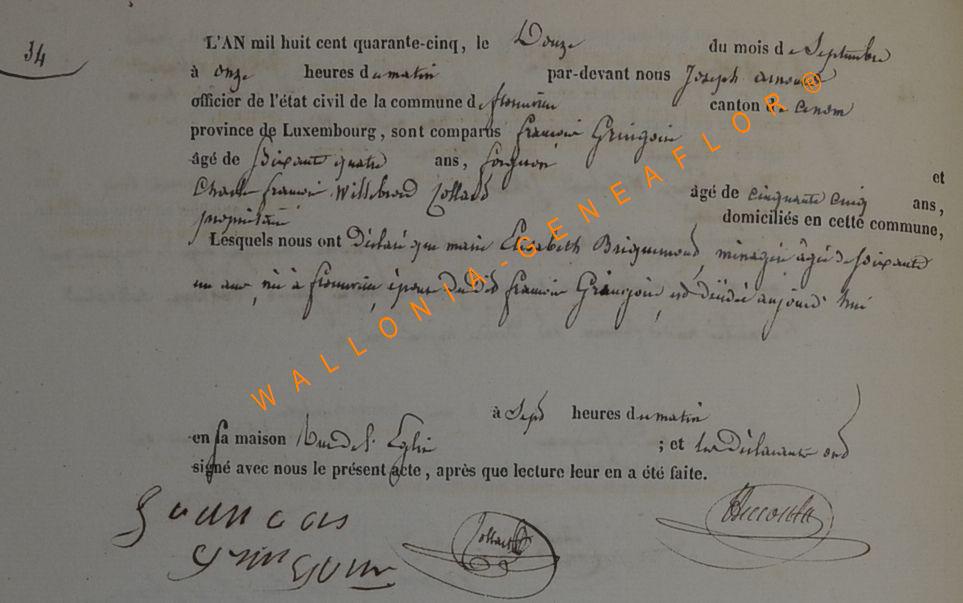 34
L'AN mil huit cent quarante-cinq, le Douze du mois de Septembre
à onze heures du matin par-devant nous Joseph
officier de l'état civil de la commune de canton de
province de Luxembourg, sont comparus francois Gringoire
âgé de Soixante quatre ans, forgeron et
Charles francois Willebrord Collard âgé de cinquante cinq ans,
propriétaire domiciliés en cette commune,
Lesquels nous ont Déclaré que marie Elisabeth ménagère âgée de Soixante
un ans, née à épouse dudit francois Gringoire, est décédée aujourd'hui
à Sept heures du matin
en sa maison Rue de l'Eglise ; et les Déclarants ond
signé avec nous le présent acte, après que lecture leur en a été faite.
francois
Collard
WALLONIA-GENEAFLOR®